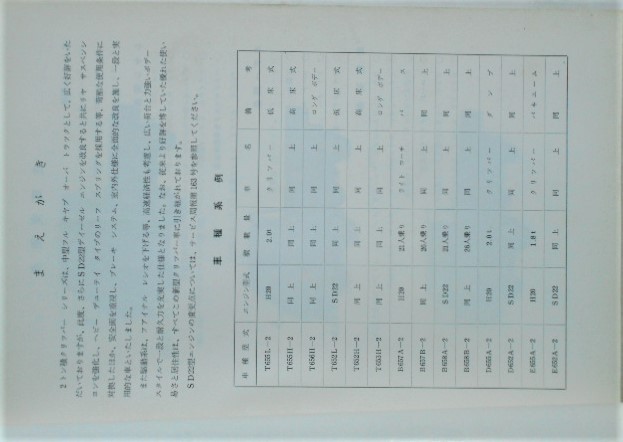 まえがき
2トン積クリッパー シリーズは、中型フル キャブ オーバ トラックとして、広く好評をいた
だいておりますが、此度、さらにSD22型ディーゼル エンジンを改良すると共にリヤ サスペンシ
ョンを強化し、ヘビー デューティ タイプのリーフ スプリングを採用する等、苛酷な使用条件に
対処したほか、安全面を重視し、ブレーキ システム、室内外仕様に全面的な改良を施し、一段と実
用的な車といたしました。
また駆動系は、ファイナル レシオを下げる等、高速経済性も考慮し、広い荷台と力強いボデー
スタイルで一段と耐久力を充実した仕様となりました。なお、従来より好評を博していた優れた使い
易さと居住性は、すべてこの新型クリッパー車に引き継がれております。
SD22型エンジンの変更点については、サービス周報第163号を参照してください。
車種系例
車種型式 エンジン型式 積載量 車名 備考
T655L-2 H20 2.0t クリッパー 低床式
T655H-2 同上 同上 同上 高床式
T656H-2 同上 同上 同上 ロング ボデー
T652L-2 SD22 同上 同上 低床式
T652H-2 同上 同上 同上 高床式
T653H-2 同上 同上 同上 ロング ボデー
B657A-2 H20 21人乗り ライト コーチ バス
B657B-2 同上 26人乗り 同上 同上
B658A-2 SD22 21人乗り 同上 同上
B658B-2 同上 26人乗り 同上 同上
D655A-2 H20 2.0t クリッパー ダンプ
D652A-2 SD22 同上 同上 同上
E655A-2 H20 1.8t クリッパー バキューム
E652A-2 SD22 同上 同上 同上